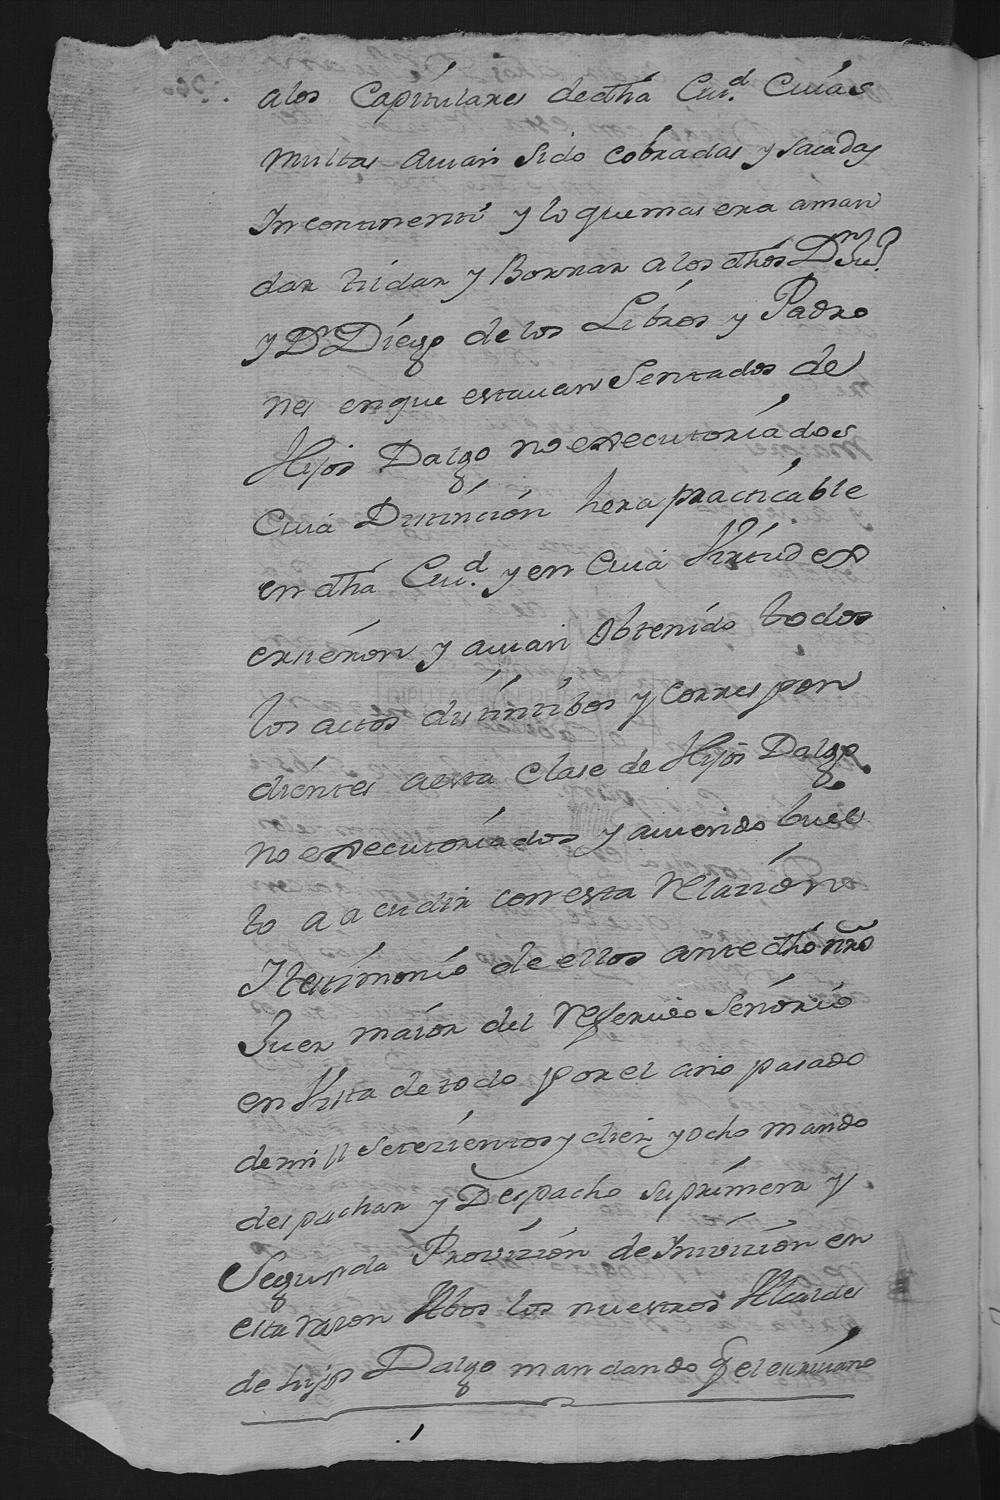 alos Capitulares de dha Ciud. Cuias
multas auian sido cobradas y sacadas
Yncontinenti y lo que mas era aman
dar tildar y Borrar alos dhos Dn
y Dn Diego de los Libros y Padro
nes enque estauan Sentados de
Hijos Dalgo no executoriados
Cuia Distinción hera practicable
en dha Ciud. y en Cuia Virtud ex
ersieron y auian obtenido todos
los actos distintibos y correspon
dientes aesta Clase de Hijos Dalgo.
no executoriados y auiendo buel
to a acudir con esta relazión
Y testimonio de ellos ante dho nro
Juez maior del Referido Señorio
en Vista de todo por el año pasado
de mill Setezientos y diez y ocho mando
despachar y Despacho su primera y
Segunda Provizión de Inivizión en
esta razon Abos los nuestros Alcaldes
de hijos Dalgo mandando q el escriuano